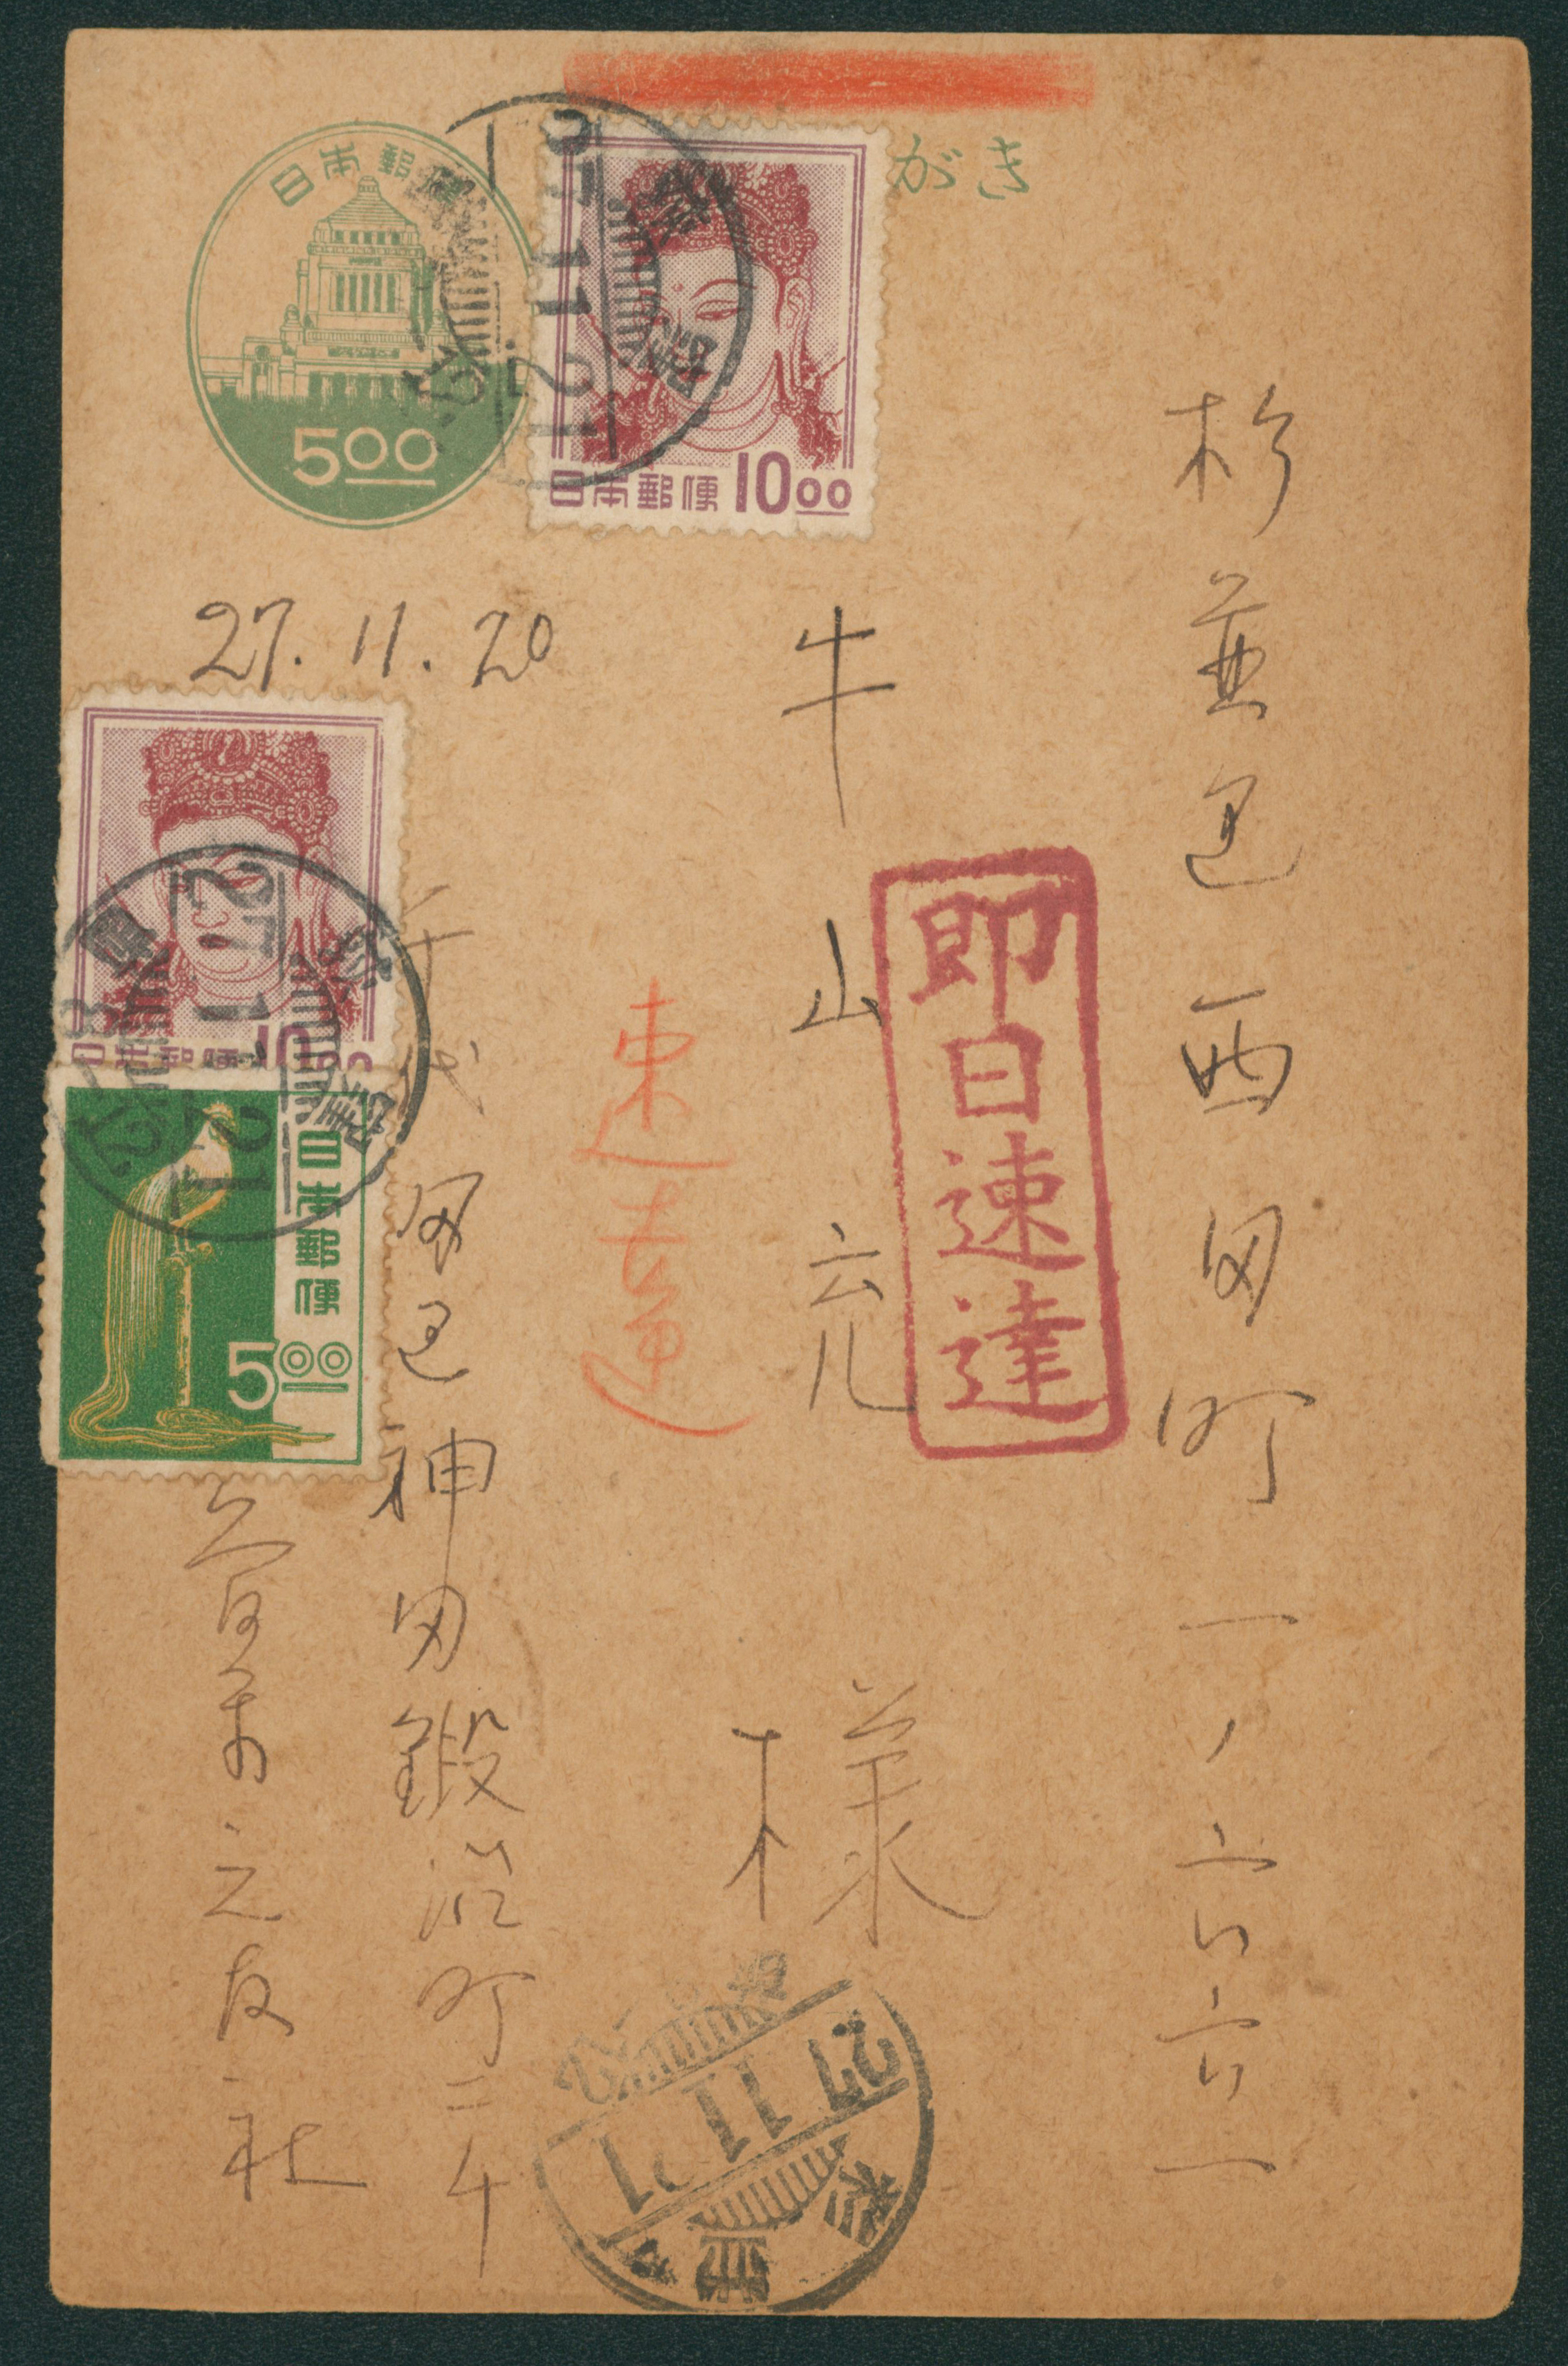 がき
日本郵便
5.00
日本郵便 10.00
杉並区西田町一ノ六六一
牛山充
様
即日速達
速達
27.11.20
日本郵便 10.00
日本郵便
5.00
千代田区神田鍛冶町三ノ
音楽之友社
27.11.21
杉並